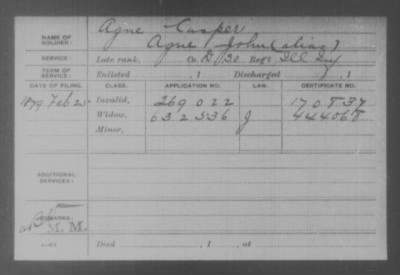 Agne Casper
NAME OF SOLDIER: Agne John (alias)
SERVICE: Late rank, Co. D, 130 Reg't Ill Inf
TERM OF SERVICE: Enlisted , 1 Discharged , 1
DATE OF FILING. CLASS. APPLICATION NO. LAW. CERTIFICATE NO.
1879 Feb 25 Invalid, 269 022 170837
Widow, 632 536 J 444068
Minor,
ADDITIONAL SERVICES:
REMARKS: M. M.
Died , 1 , at